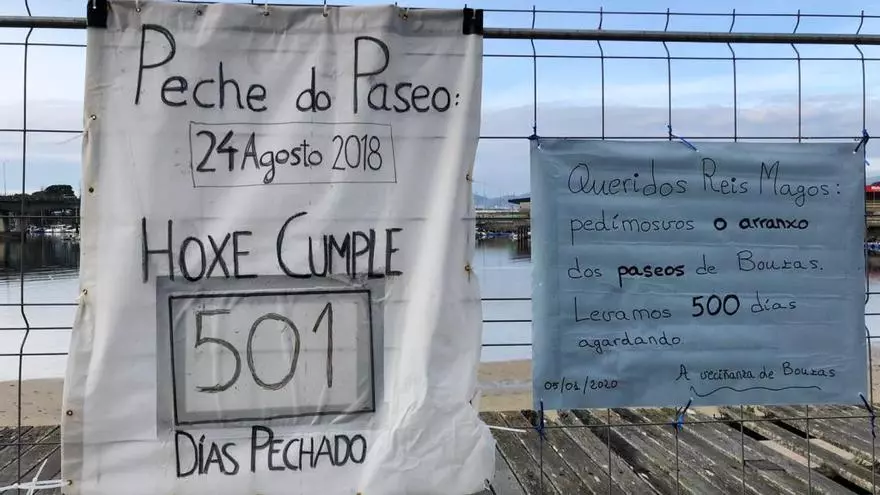 Peche do Paseo:
24 Agosto 2018
HOXE CUMPLE
501
DÍAS PECHADO
Queridos Reis Magos:
pedímosvos o arranxo
dos paseos de Bouzas.
Levamos 500 días
agardando.
05/01/2020
A veciñanza de Bouzas